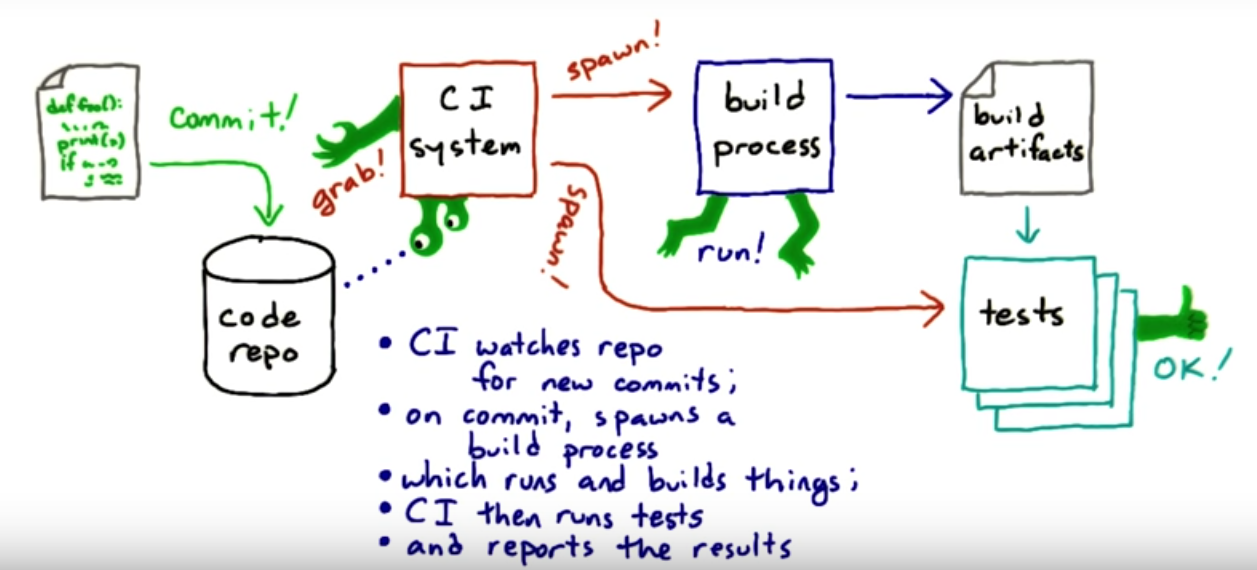 def foo():
print(s)
if
Commit!
grab!
CI
system
spawn!
spawn!
build
process
run!
build
artifacts
tests
OK!
code
repo
• CI watches repo
for new commits;
• on commit, spawns a
build process
• which runs and builds things;
• CI then runs tests
• and reports the results